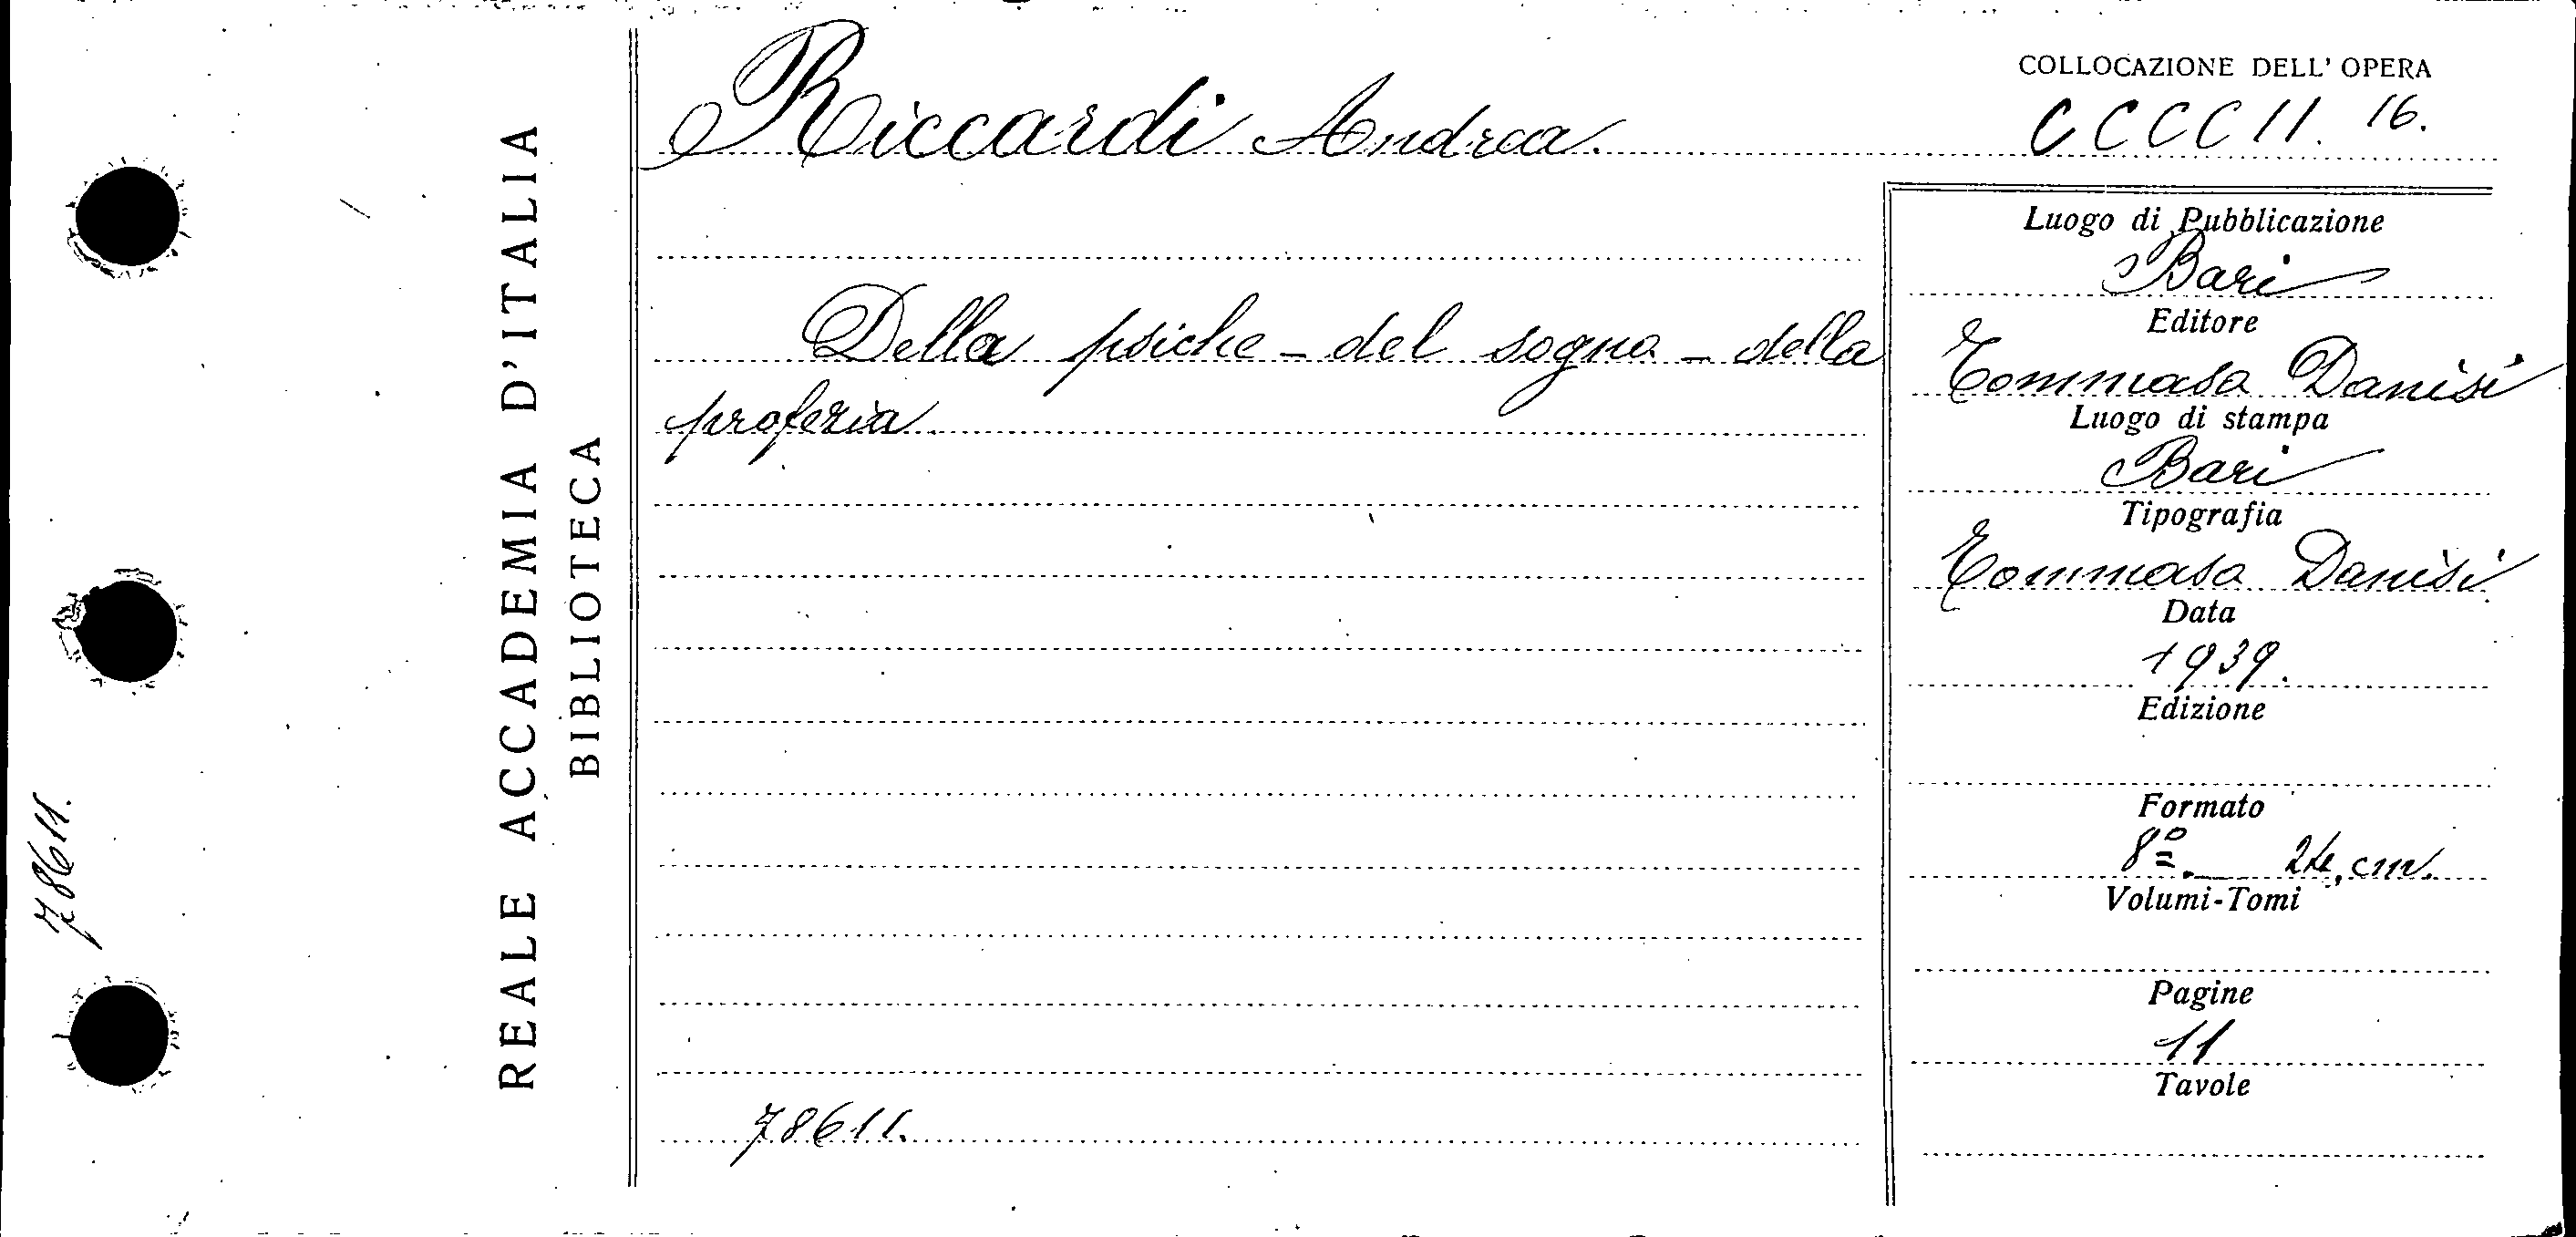 REALE ACCADEMIA D'ITALIA
BIBLIOTECA
78611.
Riccardi Andrea.
Della psiche - del sogno - della
profezia.
78611.
COLLOCAZIONE DELL' OPERA
CCCC11. 16.
Luogo di Pubblicazione
Bari
Editore
Tommaso Danisi
Luogo di stampa
Bari
Tipografia
Tommaso Danisi
Data
1939.
Edizione
Formato
8º. — 24, cm.
Volumi-Tomi
Pagine
11
Tavole